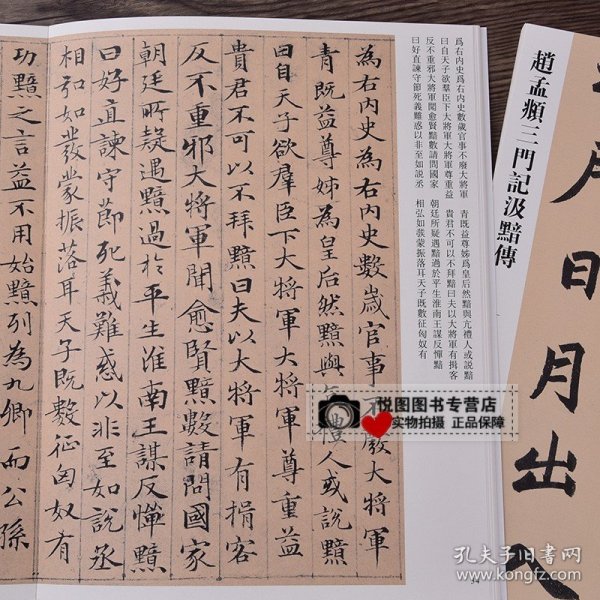 趙孟頫三門記汲黯傳
爲右内史爲右内史數歲官事不廢大將軍　青既益尊姊爲皇后然黯與亢禮人或說黯
曰自天子欲羣臣下大將軍大將軍尊重益　貴君不可以不拜黯曰夫以大將軍有揖客
反不重邪大將軍聞愈賢黯數請問國家　朝廷所疑遇黯過於平生淮南王謀反憚黯
曰好直諫守節死義難惑以非至如說丞　相弘如發蒙振落耳天子既數征匈奴有
為右内史為右内史數歲官事不廢大将軍
青既益尊姊為皇后然黯與禮人或說黯
曰自天子欲羣臣下大将軍大将軍尊重益
貴君不可以不拜黯曰夫以大将軍有揖客
反不重邪大将軍聞愈賢黯數請問國家
朝廷所疑遇黯過於平生淮南王謀反憚黯
曰好直諫守節死義難惑以非至如說丞
相弘如發蒙振落耳天子既數征匈奴有
功黯之言益不用始黯列為九卿而公孫
日月出
悦图图书专营店
实物拍摄 正品保障
孔夫子旧书网
www.kongfz.com